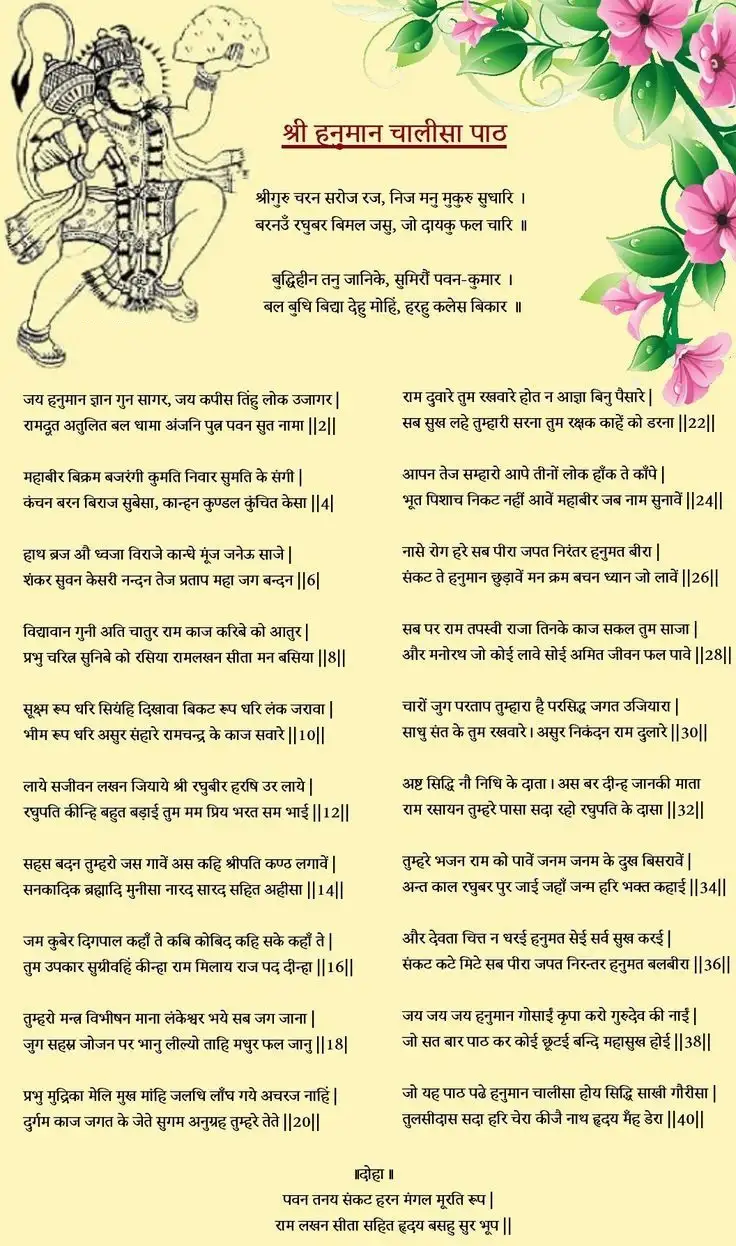 श्री हनुमान चालीसा पाठ
श्रीगुरु चरन सरोज रज, निज मनु मुकुरु सुधारि ।
बरनउँ रघुबर बिमल जसु, जो दायकु फल चारि ॥
बुद्धिहीन तनु जानिके, सुमिरौं पवन-कुमार ।
बल बुधि बिद्या देहु मोहिं, हरहु कलेस बिकार ॥
जय हनुमान ज्ञान गुन सागर, जय कपीस तिंहु लोक उजागर |
रामदूत अतुलित बल धामा अंजनि पुत्र पवन सुत नामा ||2||
महाबीर बिक्रम बजरंगी कुमति निवार सुमति के संगी |
कंचन बरन बिराज सुबेसा, कान्हन कुण्डल कुंचित केसा ||4|
हाथ ब्रज औ ध्वजा विराजे कान्धे मूंज जनेऊ साजे |
शंकर सुवन केसरी नन्दन तेज प्रताप महा जग बन्दन ||6|
विद्यावान गुनी अति चातुर राम काज करिबे को आतुर |
प्रभु चरित्र सुनिबे को रसिया रामलखन सीता मन बसिया ||8||
सूक्ष्म रूप धरि सियंहि दिखावा बिकट रूप धरि लंक जरावा |
भीम रूप धरि असुर संहारे रामचन्द्र के काज सवारे ||10||
लाये सजीवन लखन जियाये श्री रघुबीर हरषि उर लाये |
रघुपति कीन्हि बहुत बड़ाई तुम मम प्रिय भरत सम भाई ||12||
सहस बदन तुम्हरो जस गावें अस कहि श्रीपति कण्ठ लगावें |
सनकादिक ब्रह्मादि मुनीसा नारद सारद सहित अहीसा ||14||
जम कुबेर दिगपाल कहाँ ते कबि कोबिद कहि सके कहाँ ते |
तुम उपकार सुग्रीवहिं कीन्हा राम मिलाय राज पद दीन्हा ||16||
तुम्हरो मन्त्र विभीषन माना लंकेश्वर भये सब जग जाना |
जुग सहस्र जोजन पर भानु लील्यो ताहि मधुर फल जानु ||18|
प्रभु मुद्रिका मेलि मुख मांहि जलधि लाँघ गये अचरज नाहिं |
दुर्गम काज जगत के जेते सुगम अनुग्रह तुम्हरे तेते ||20||
राम दुवारे तुम रखवारे होत न आज्ञा बिनु पैसारे |
सब सुख लहे तुम्हारी सरना तुम रक्षक काहें को डरना ||22||
आपन तेज सम्हारो आपे तीनों लोक हाँक ते काँपे |
भूत पिशाच निकट नहीं आवें महाबीर जब नाम सुनावें ||24||
नासे रोग हरे सब पीरा जपत निरंतर हनुमत बीरा |
संकट ते हनुमान छुड़ावें मन क्रम बचन ध्यान जो लावें ||26||
सब पर राम तपस्वी राजा तिनके काज सकल तुम साजा |
और मनोरथ जो कोई लावे सोई अमित जीवन फल पावे ||28||
चारों जुग परताप तुम्हारा है परसिद्ध जगत उजियारा |
साधु संत के तुम रखवारे। असुर निकंदन राम दुलारे ||30||
अष्ट सिद्धि नौ निधि के दाता। अस बर दीन्ह जानकी माता
राम रसायन तुम्हरे पासा सदा रहो रघुपति के दासा ||32||
तुम्हरे भजन राम को पावें जनम जनम के दुख बिसरावें |
अन्त काल रघुबर पुर जाई जहाँ जन्म हरि भक्त कहाई ||34||
और देवता चित्त न धरई हनुमत सेई सर्व सुख करई |
संकट कटे मिटे सब पीरा जपत निरन्तर हनुमत बलबीरा ||36||
जय जय जय हनुमान गोसाईं कृपा करो गुरुदेव की नाईं |
जो सत बार पाठ कर कोई छूटई बन्दि महासुख होई ||38||
जो यह पाठ पढे हनुमान चालीसा होय सिद्धि साखी गौरीसा |
तुलसीदास सदा हरि चेरा कीजै नाथ हृदय मँह डेरा ||40||
॥दोहा ॥
पवन तनय संकट हरन मंगल मूरति रूप |
राम लखन सीता सहित हृदय बसहु सुर भूप ||